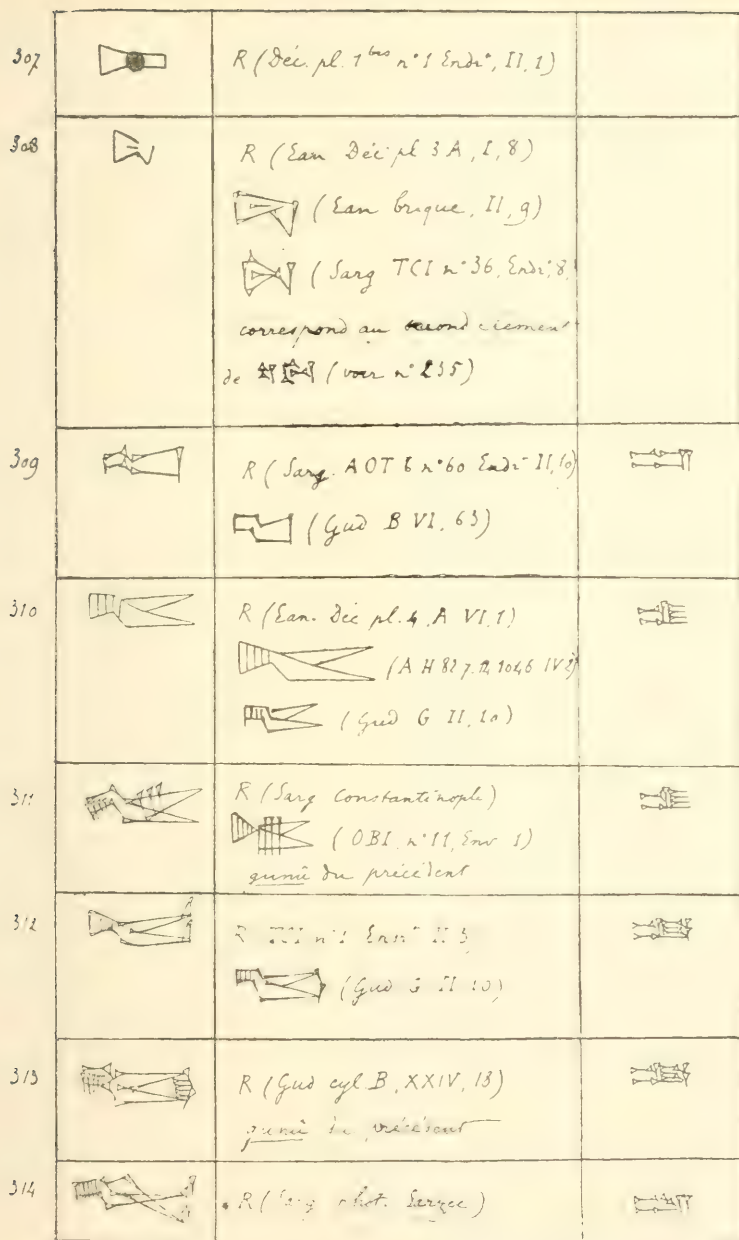 307
R (Déc. pl. 1 bis n° 1 Endr., II, 1)
308
R (Ean Déc pl 3 A, I, 8)
(Ean brique, II, 9)
(Sarg TCI n° 36, Endr, 8,
correspond au second element
de (voir n° 235)
309
R (Sarg. AOT 6 n° 60 Endr II, 10)
(Gud B VI, 63)
310
R (Ean. Déc pl. 4, A VI, 1)
(A H 82 7. 1046 IV 2)
(Gud G II, 10)
311
R (Sarg Constantinople)
(OBI, n° 11, Env 1)
gunû du précédent
312
R n° 1 II
(Gud G II 10)
313
R (Gud cyl. B, XXIV, 13)
gunû du précédent
314
R (Sarg phot. Sarzec)